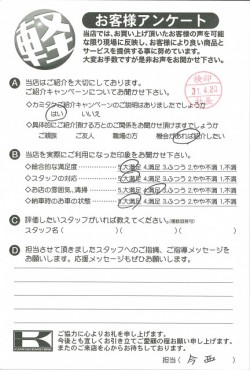 軽
お客様アンケート
当店では、お買い上げ頂いたお客様の声を可能
な限り現場に反映し、お客様により良い商品と
サービスを提供する事に努めています。
大変お手数ですが是非お声をお聞かせ下さい。
A 当店はご紹介を大切にしております。
ご紹介キャンペーンについてお聞かせ下さい。
◇カミタケご紹介キャンペーンのご説明はありましたでしょうか
はい いいえ
◇具体的にご紹介頂ける方とのご関係をお聞かせ頂けますでしょうか
ご親談 ご友人 職場の方 機会があれば紹介したい
検印
31.4.20
B 当店を実際にご利用になった印象をお聞かせ下さい。
◇総合的な満足度 5.大満足 4.満足 3.ふつう 2.やや不満 1.不満
◇スタッフの対応 5.大満足 4.満足 3.ふつう 2.やや不満 1.不満
◇お店の雰囲気、清掃 5.大満足 4.満足 3.ふつう 2.やや不満 1.不満
◇納車時のお車の状態 5.大満足 4.満足 3.ふつう 2.やや不満 1.不満
C 評価したいスタッフがいれば教えてください。(複数回答可)
スタッフ名( )( )( )
D 担当させて頂きましたスタッフへのご指摘、ご指導メッセージを
お願いします。応援メッセージもぜひお願いします。
K
ご協力に心よりお礼を申し上げます。
今後とも宜しくお引き立てご愛顧の程お願い申し上げます。
またのご来店を心からお待ちしております。
担当( 今西 )